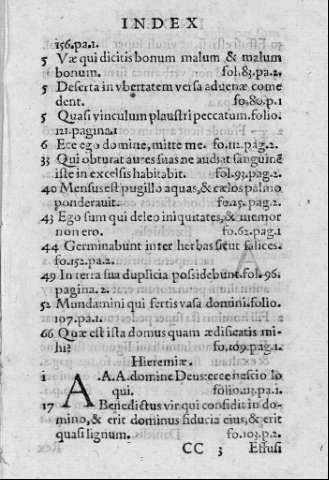 INDEX
156.pa.1.
5 Væ qui dicitis bonum malum & malum
bonum. fol.83.pa.2.
5 Deserta in vbertatem versa aduenæ come
dent. fo.80.p.1
5 Quasi vinculum plaustri peccatum.folio.
121.pagina.1
6 Ece ego domine, mitte me. fo.112.pag.2.
33 Qui obturat aures suas ne audiat sanguinē
iste in excelsis habitabit. fol.93.pag.2.
40 Mensus est pugillo aquas, & cælos palmo
ponderauit. fo.25.pag.2.
43 Ego sum qui deleo iniquitates, & memor
non ero. fo.62.pag.1
44 Germinabunt inter herbas sicut salices.
fo.152.pa.2.
49 In terra sua duplicia possidebunt.fol.96.
pagina.2.
52 Mundamini qui fertis vasa domini.folio.
107.pa.1.
66 Quæ est ista domus quam ædificatis mi-
hi? fo.109.pag.1.
Hieremiæ.
1 A.A.A.domine Deus:ecce nascio lo
qui. folio.113.pa.1.
17 Benedictus vir qui confidit in do-
mino,& erit dominus fiducia eius,& erit
quasi lignum. fo.103.p.2.
CC 3 Effusi